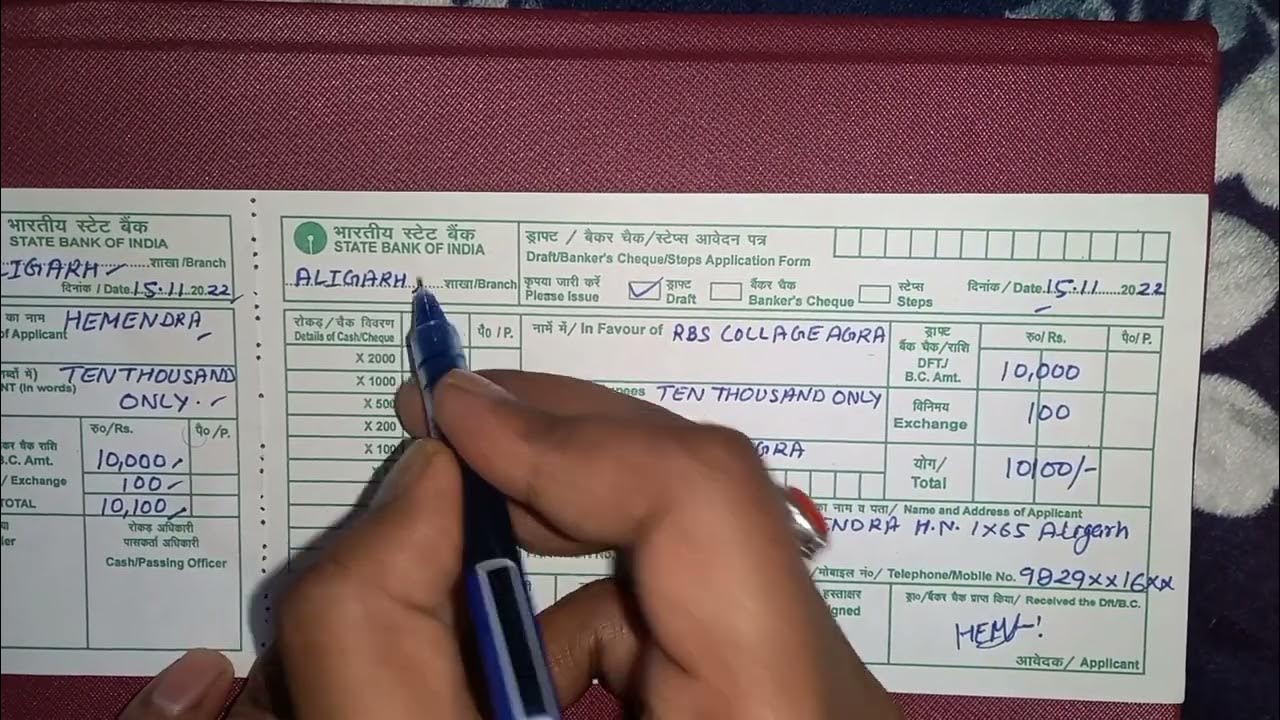 भारतीय स्टेट बैंक
STATE BANK OF INDIA
LIGARH शाखा/Branch
दिनांक / Date 15.11.2022
का नाम HEMENDRA
of Applicant
TEN THOUSAND
NT (In words)
ONLY.
रु०/Rs. पै०/P.
कर चैक राशि
B.C. Amt. 10,000
/ Exchange 100
TOTAL 10,100
रोकड़ अधिकारी
पासकर्ता अधिकारी
Cash/Passing Officer
भारतीय स्टेट बैंक
STATE BANK OF INDIA
ALIGARH शाखा/Branch
ड्राफ्ट / बैंकर चैक/स्टेप्स आवेदन पत्र
Draft/Banker's Cheque/Steps Application Form
कृपया जारी करें ड्राफ्ट बैंकर चैक स्टेप्स
Please Issue Draft Banker's Cheque Steps
दिनांक / Date 15.11.2022
रोकड़/चैक विवरण पै०/P.
Details of Cash/Cheque
X 2000
X 1000
X 500
X 200
X 100
नामें में/ In Favour of RBS COLLAGE AGRA
TEN THOUSAND ONLY
GRA
ड्राफ्ट रु०/Rs. पै०/P.
बैंक चैक/राशि
DFT./ 10,000
B.C. Amt.
विनिमय 100
Exchange
योग/ 10100/-
Total
का नाम व पता/ Name and Address of Applicant
ENDRA H.N. 1X65 Aligarh
/मोबाइल नं०/ Telephone/Mobile No. 9829xx16xx
हस्ताक्षर ड्रा०/बैंकर चैक प्राप्त किया/ Received the Dft/B.C.
gned
आवेदक/ Applicant